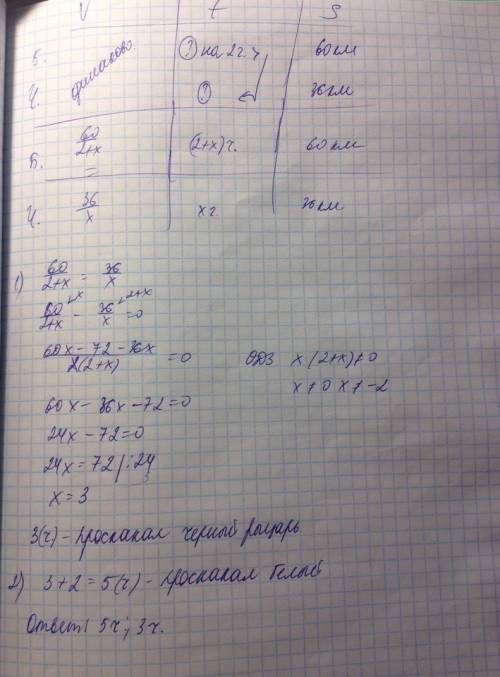 V t S
Б. ? на 2 г. 60 км
Ч. одинаково. ? 36 км
Б. 60/2+x (2+x) ч. 60 км
=
Ч. 36/x x ч. 36 км
1) 60/2+x = 36/x
60/2+x - 36/x = 0
60x - 72 - 36x / x(2+x) = 0 ОДЗ x(2+x)≠0
x≠0 x≠-2
60x - 36x - 72 = 0
24x - 72 = 0
24x = 72 |:24
x = 3
3(ч) - проскакал черный рыцарь
2) 3+2=5(ч) - проскакал белый
Ответ: 5ч; 3ч.